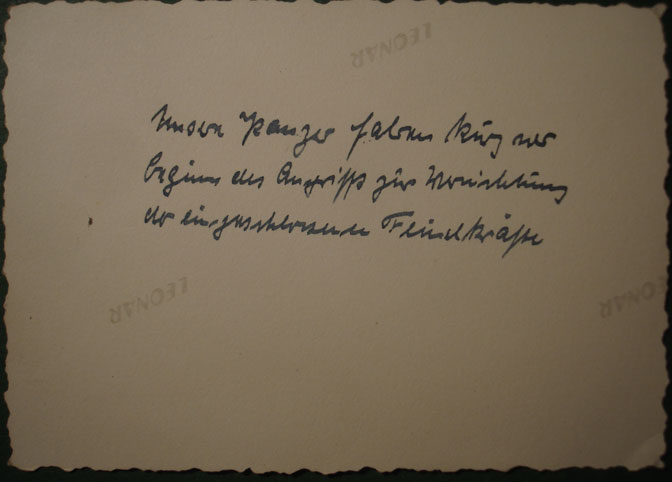 LEONAR
Unsere Panzer fahren kurz vor
beginn des Angriffs zur Vernichtung
der eingeschlossenen Feindkräfte
LEONAR
LEONAR